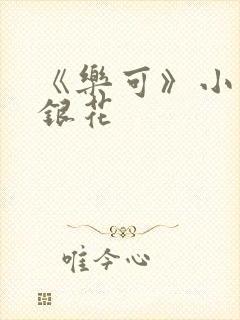 《樂可》小
銀花
唯今心